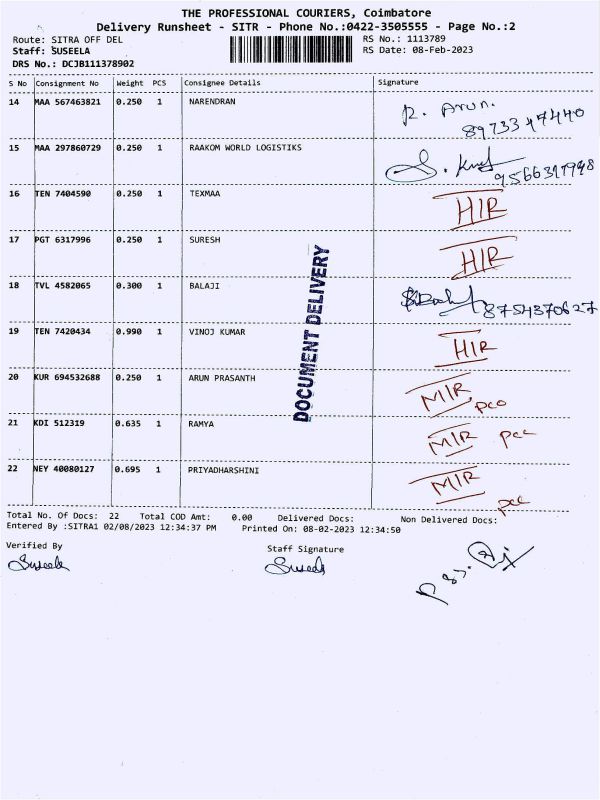 THE PROFESSIONAL COURIERS, Coimbatore
Delivery Runsheet - SITR - Phone No.:0422-3505555 - Page No.:2
Route: SITRA OFF DEL RS No.: 1113789
Staff: SUSEELA RS Date: 08-Feb-2023
DRS No.: DCJB111378902
S No Consignment No Weight PCS Consignee Details Signature
14 MAA 567463821 0.250 1 NARENDRAN R. Arun. 8973347440
15 MAA 297860729 0.250 1 RAAKOM WORLD LOGISTIKS
16 TEN 7404590 0.250 1 TEXMAA HIR
17 PGT 6317996 0.250 1 SURESH HIR
18 TVL 4582065 0.300 1 BALAJI 8754370627
19 TEN 7420434 0.990 1 VINOJ KUMAR HIR
20 KUR 694532688 0.250 1 ARUN PRASANTH MIR
21 KDI 512319 0.635 1 RAMYA MIR
22 NEY 40080127 0.695 1 PRIYADHARSHINI MIR
DOCUMENT DELIVERY
Total No. Of Docs: 22 Total COD Amt: 0.00 Delivered Docs: Non Delivered Docs:
Entered By :SITRA1 02/08/2023 12:34:37 PM Printed On: 08-02-2023 12:34:50
Verified By Staff Signature
Suseela Suseela